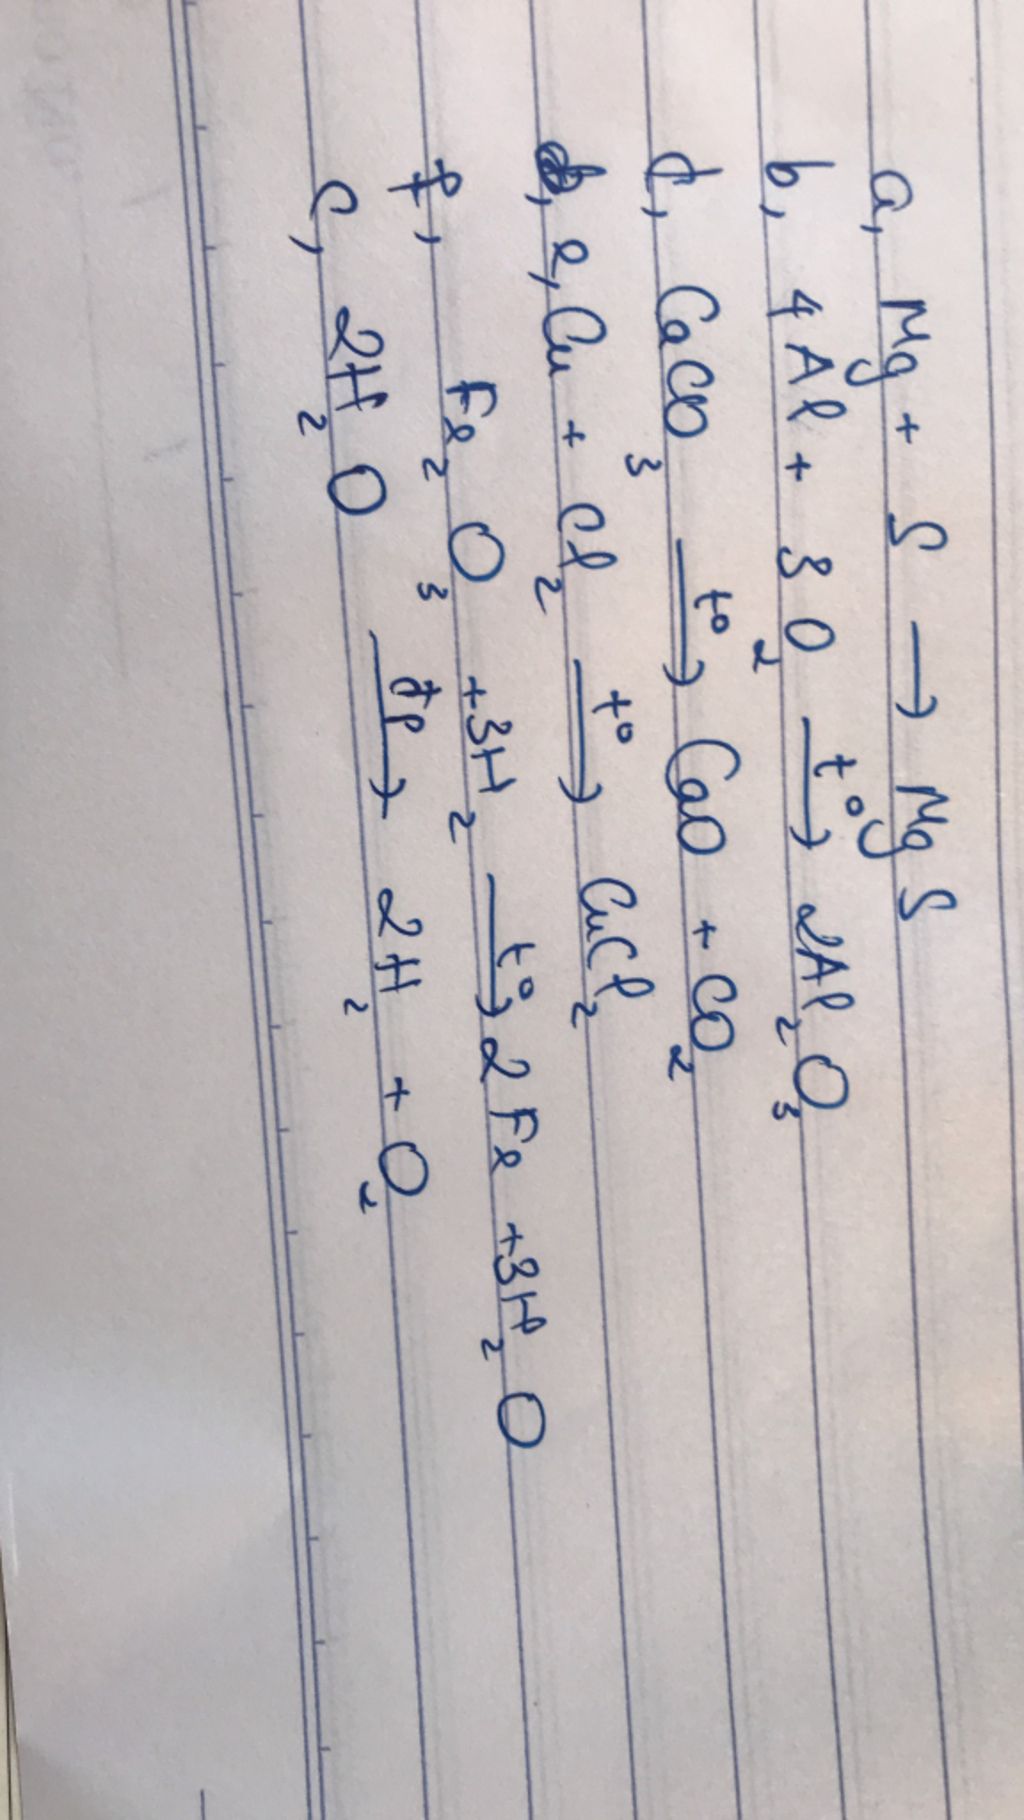 a, Mg + S → MgS
b, 4Al + 3O₂ →t° 2Al₂O₃
d, CaCO₃ →t° CaO + CO₂
e, Cu + Cl₂ →t° CuCl₂
f, Fe₂O₃ + 3H₂ →t° 2Fe + 3H₂O
c, 2H₂O →đp 2H₂ + O₂